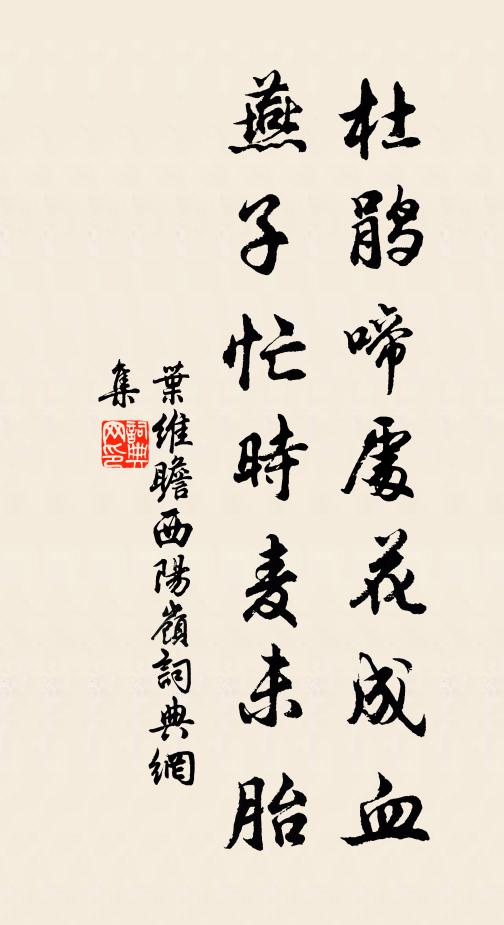 杜鹃啼處花成血
燕子忙時麦未胎
葉維瞻西陽嶺詞典網
集
詞典
网印